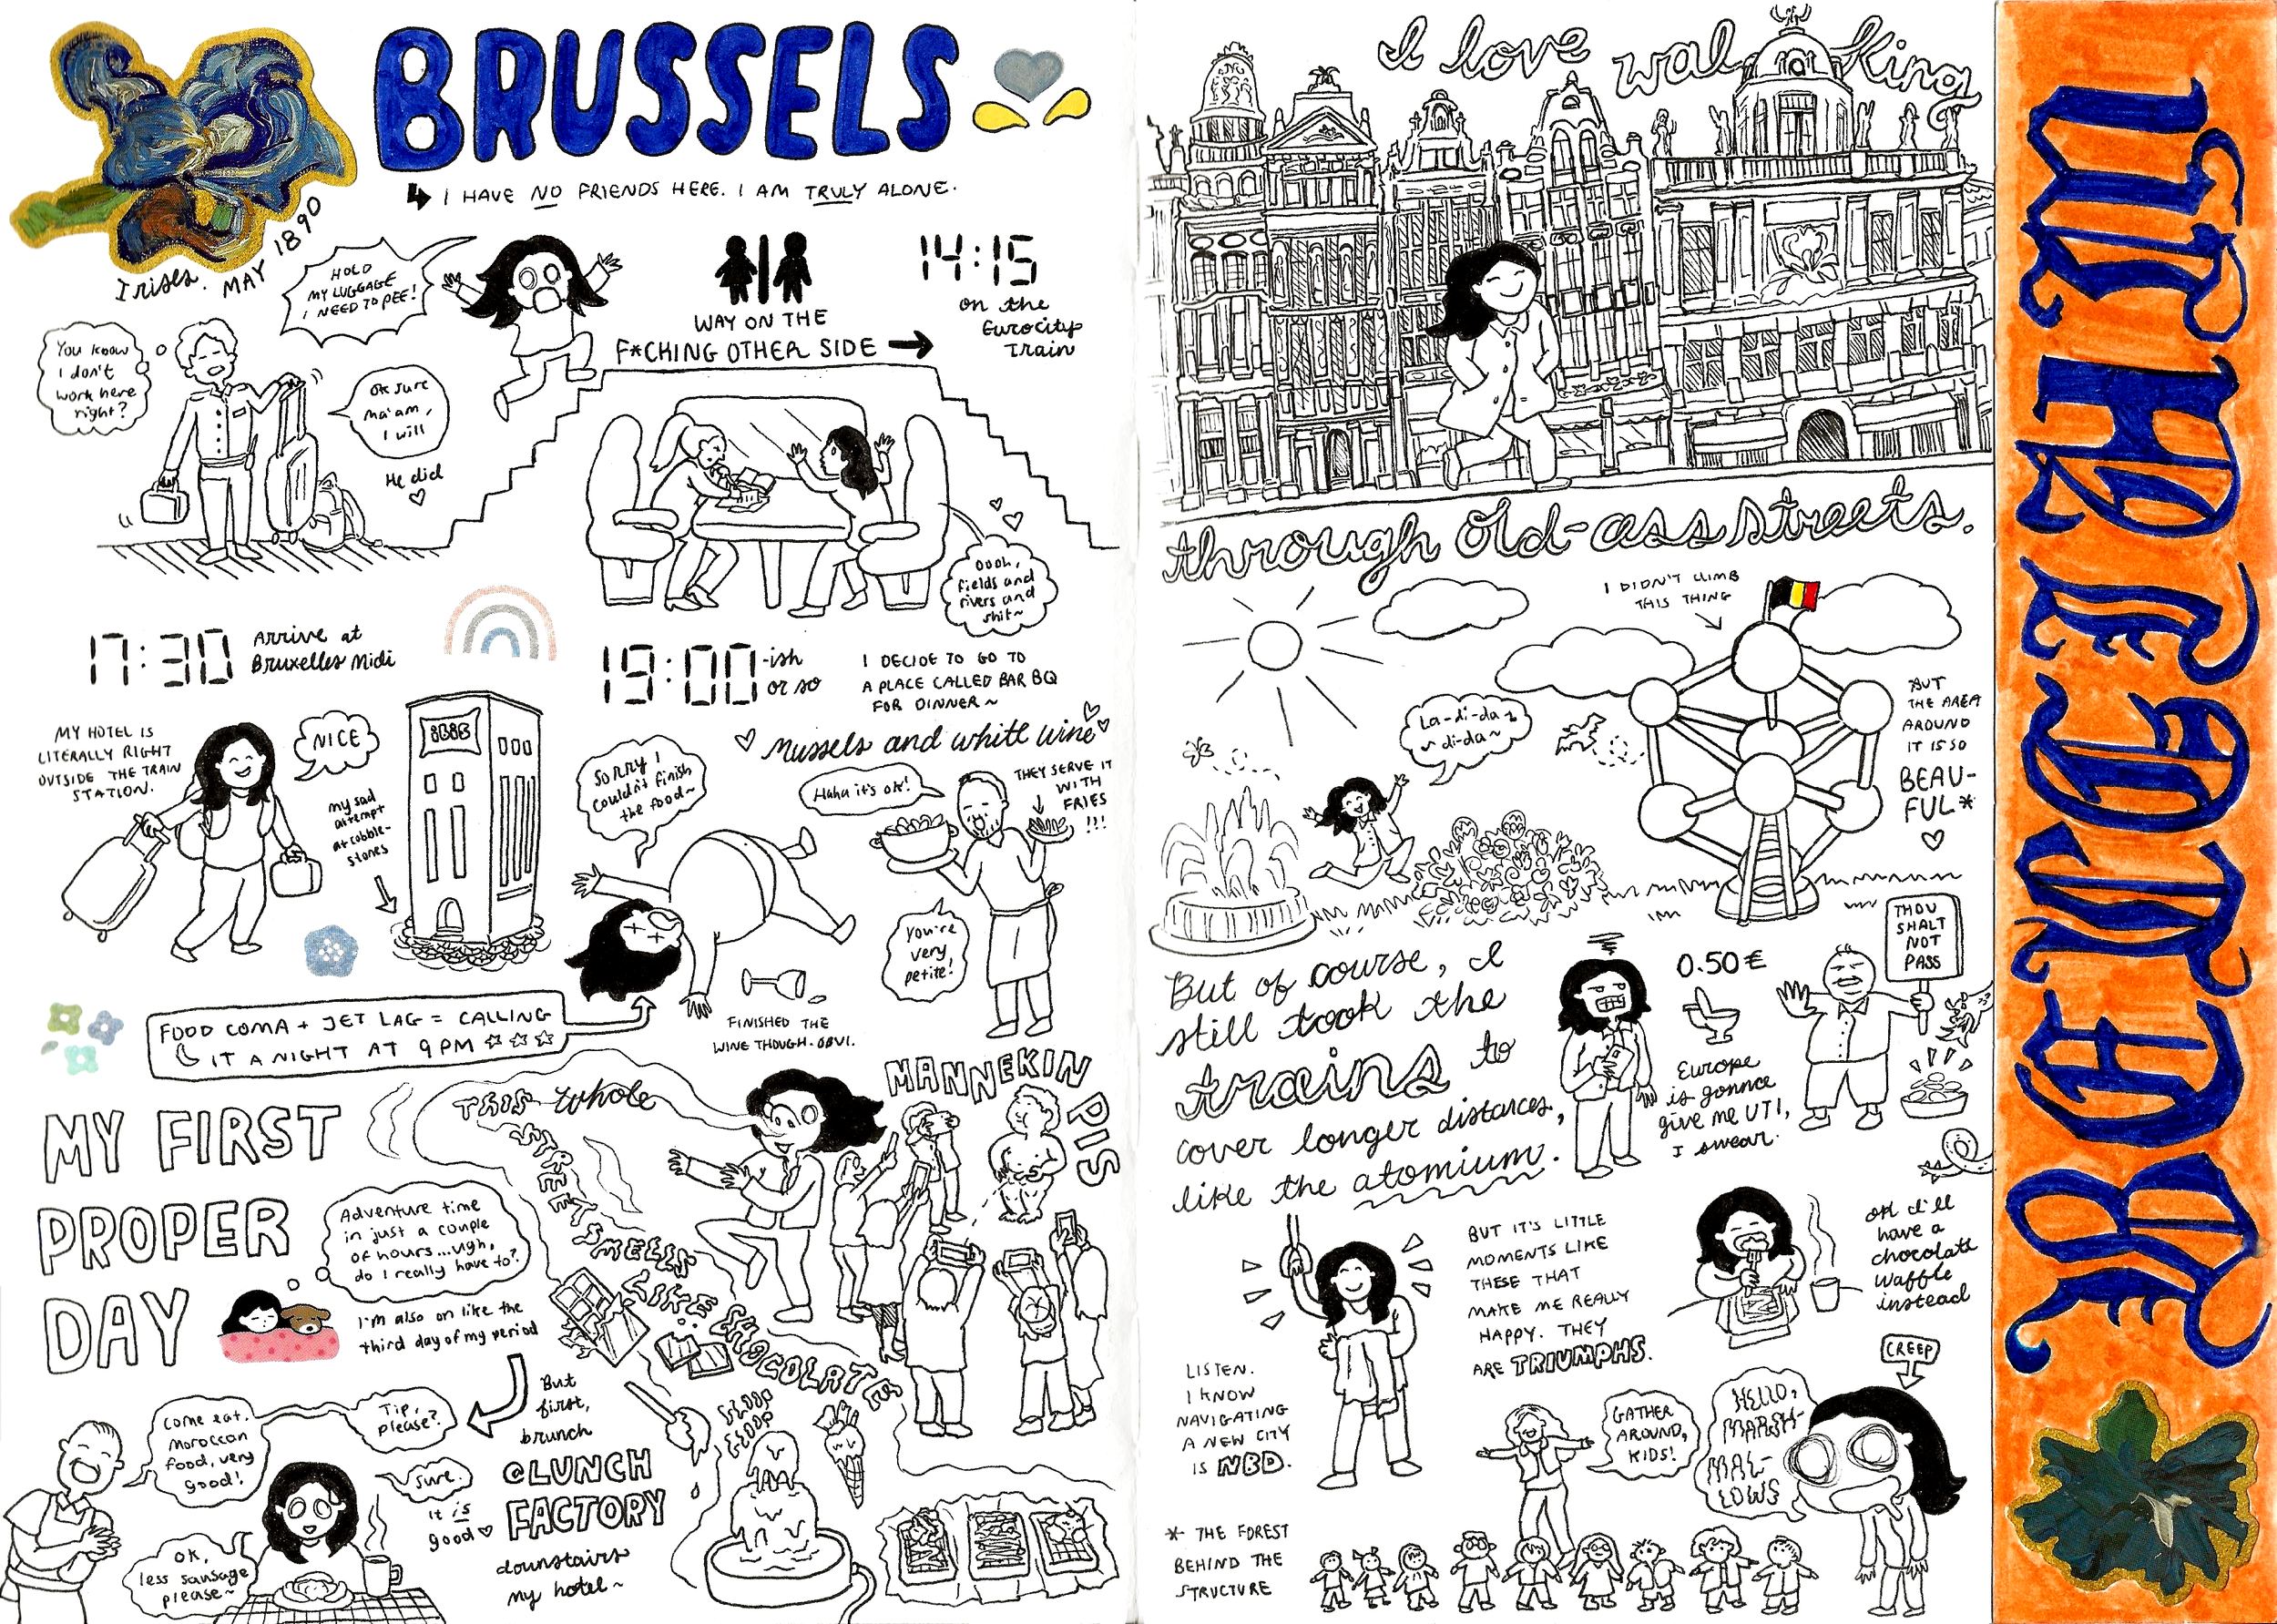 BRUSSELS
I HAVE NO FRIENDS HERE. I AM TRULY ALONE.
Irises. MAY 1890
HOLD
MY LUGGAGE
I NEED TO PEE!
You know
I don't
work here
right?
OK sure
ma'am,
I will
He did
WAY ON THE
F*CHING OTHER SIDE
14:15
on the
Eurocity
Train
Oooh,
fields and
rivers and
shit~
17:30
Arrive at
Bruxelles Midi
MY HOTEL IS
LITERALLY RIGHT
OUTSIDE THE TRAIN
STATION.
NICE
my sad
attempt
at cobble-
stones
19:00
-ish
or so
I DECIDE TO GO TO
A PLACE CALLED BAR BQ
FOR DINNER~
mussels and white wine
Sorry I
couldn't finish
the food~
Haha it's ok!
THEY SERVE IT
WITH
FRIES
!!!
You're
very
petite!
FINISHED THE
WINE THOUGH. OBVI.
FOOD COMA + JET LAG = CALLING
IT A NIGHT AT 9PM
MY FIRST
PROPER
DAY
Adventure time
in just a couple
of hours...ugh,
do I really have to?
I'm also on like the
third day of my period
But
first,
brunch
@LUNCH
FACTORY
downstairs
my hotel~
Come eat.
Moroccan
food, very
good!
Tip,
please?
Sure.
It is
good
OK,
less sausage
please~
THIS whole
STREET SMELLS
LIKE CHOCOLATE
GLOOP
GLOOP
MANNEKIN
PIS
I love walking
through old-ass streets.
I DIDN'T CLIMB
THIS THING
La-di-da
~di-da~
BUT
THE AREA
AROUND
IT IS SO
BEAU-
FUL*
But of course, I
still took the
trains to
cover longer distances,
like the atomium.
0.50€
THOU
SHALT
NOT
PASS
Europe
is gonna
give me UTI,
I swear.
LISTEN.
I KNOW
NAVIGATING
A NEW CITY
IS NBD.
BUT IT'S LITTLE
MOMENTS LIKE
THESE THAT
MAKE ME REALLY
HAPPY. THEY
ARE TRIUMPHS.
OK I'll
have a
chocolate
waffle
instead
CREEP
GATHER
AROUND,
KIDS!
HELLO,
MARSH-
MAL-
LOWS
* THE FOREST
BEHIND THE
STRUCTURE